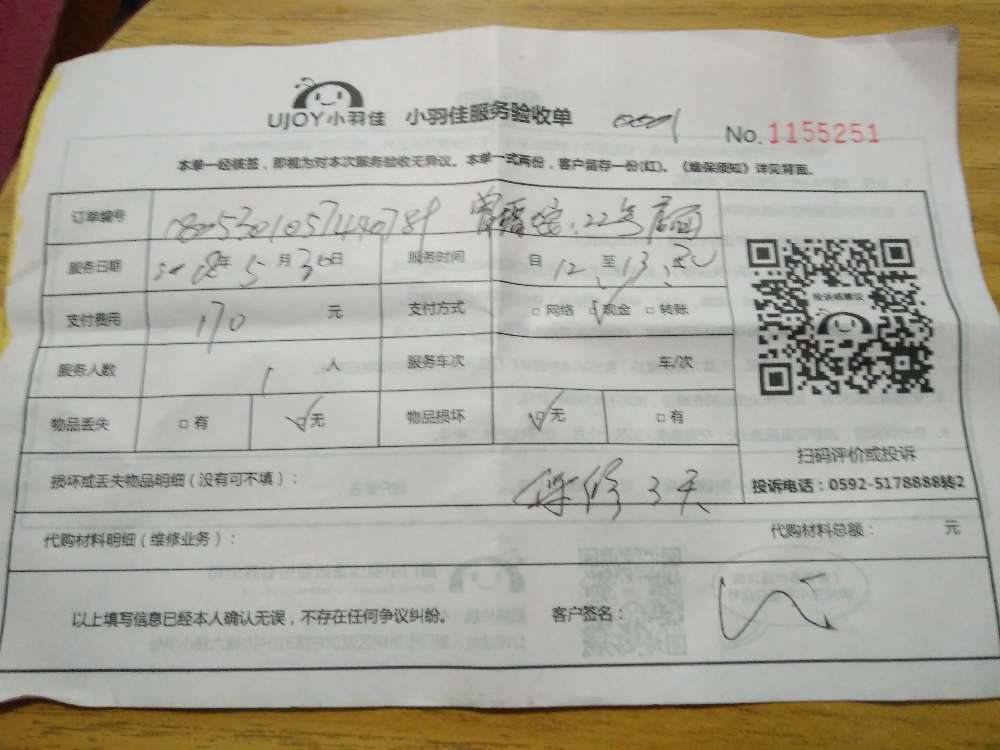 UJOY小羽佳 小羽佳服务验收单
No.1155251
本单一经核签，即视为对本次服务验收无异议。本单一式两份，客户留存一份(红)。《维保须知》详见背面。
订单编号 22号店面
服务日期 2018年5月30日 服务时间 自12至13
支付费用 170元 支付方式 □网络 ☑现金 □转账
服务人数 1人 服务车次 车/次
物品丢失 □有 ☑无 物品损坏 ☑无 □有
损坏或丢失物品明细（没有可不填）： 保修3天
扫码评价或投诉
投诉电话：0592-5178888转2
代购材料明细（维修业务）： 代购材料总额： 元
以上填写信息已经本人确认无误，不存在任何争议纠纷。 客户签名：